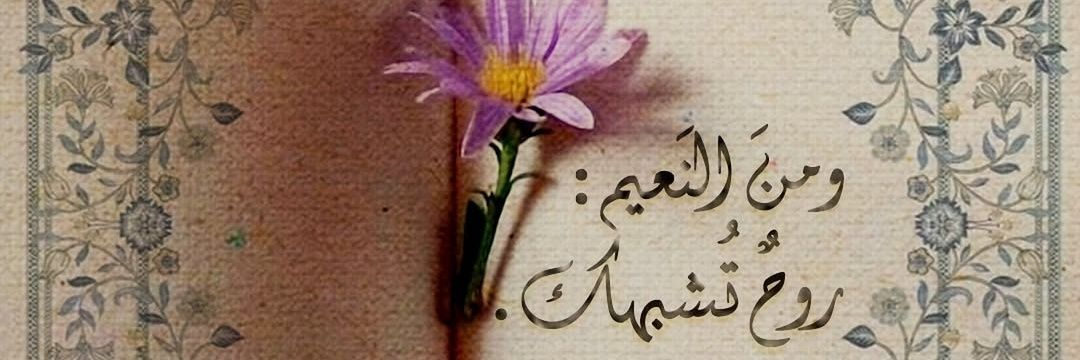 ومنَ النَعيم :
روحٌ تُشبهك .